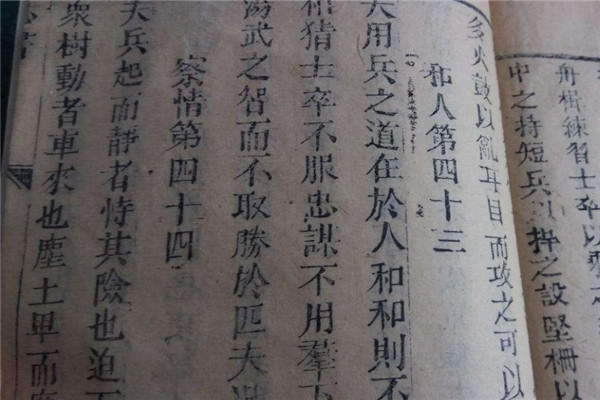 舟楫練習士卒以
中之持短兵以捍之設堅柵以
多火鼓以亂耳目而攻之可以
和人第四十三
夫用兵之道在於人和和則不
和猜士卒不服忠謀不用羣下
湯武之智而不取勝於匹夫
察情第四十四
夫兵起而靜者恃其險也迫而
衆樹動者車來也塵土卑而廣